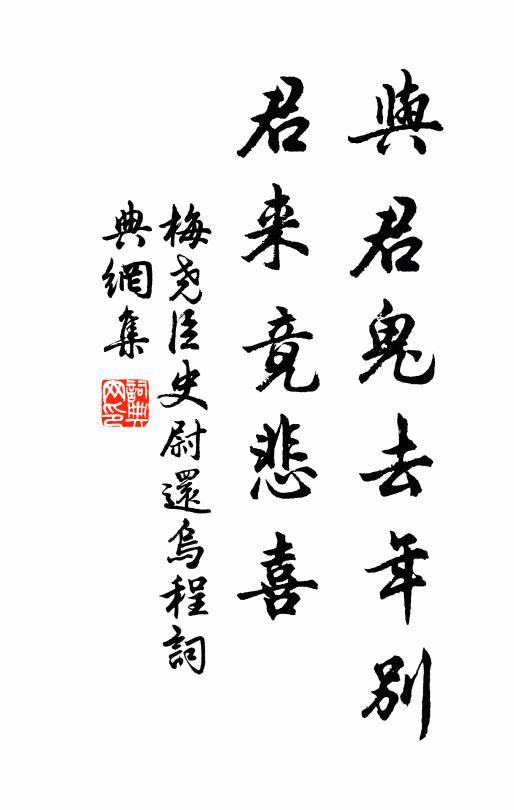 與君鬼去年別
君来竟悲喜
梅尧臣史尉還烏程詞
典網集
詞典网印